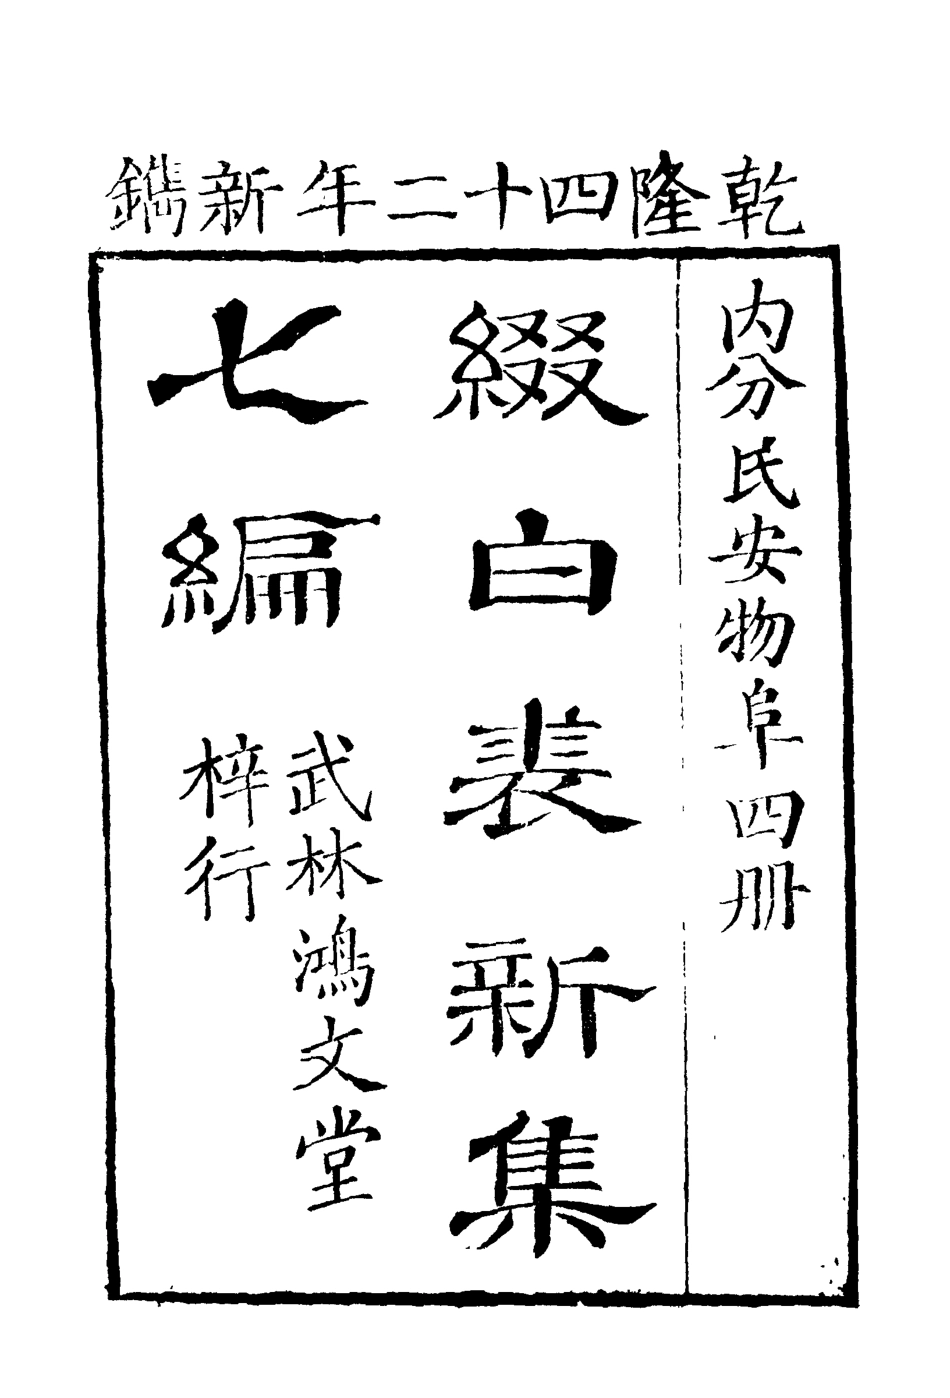 乾隆四十二年新鐫
内分民安物阜四册
綴白裘新集
七編
武林鴻文堂
梓行